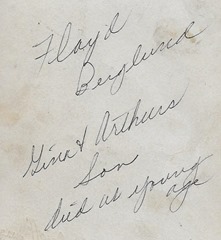 Floyd
Berglund
Gina & Arthurs
Son
died at young
age